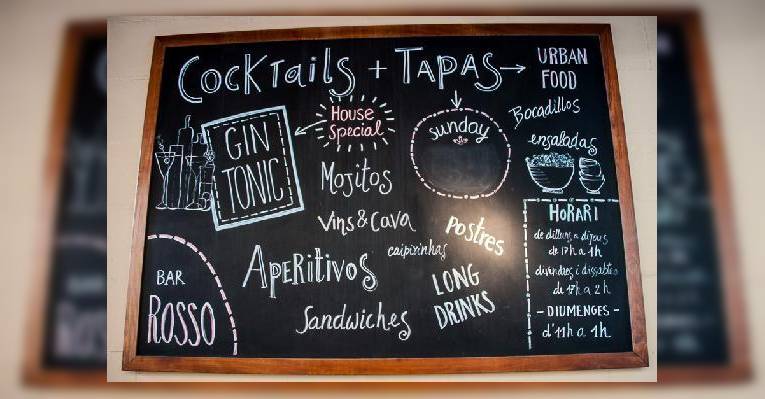 Cocktails + Tapas →
URBAN
FOOD
Bocadillos
ensaladas
House
Special
GIN
TONIC
sunday
Mojitos
Vins & Cava
caipirinhas
Postres
Aperitivos
LONG
DRINKS
Sandwiches
BAR
ROSSO
HORARI
de dilluns a dijous
de 17h a 1h
divendres i dissabtes
de 17h a 2h
- DIUMENGES -
d'11h a 1h